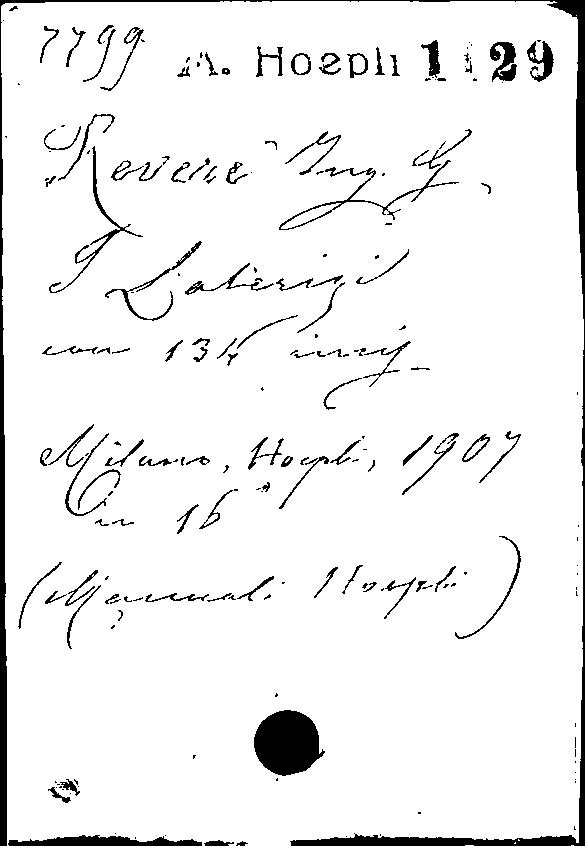 7799 M. Hoepli 1129
"Revere" Ing. G.
I Laterizi
con 134 incis.
Milano, Hoepli, 1907
in 16°
(Manuali Hoepli)